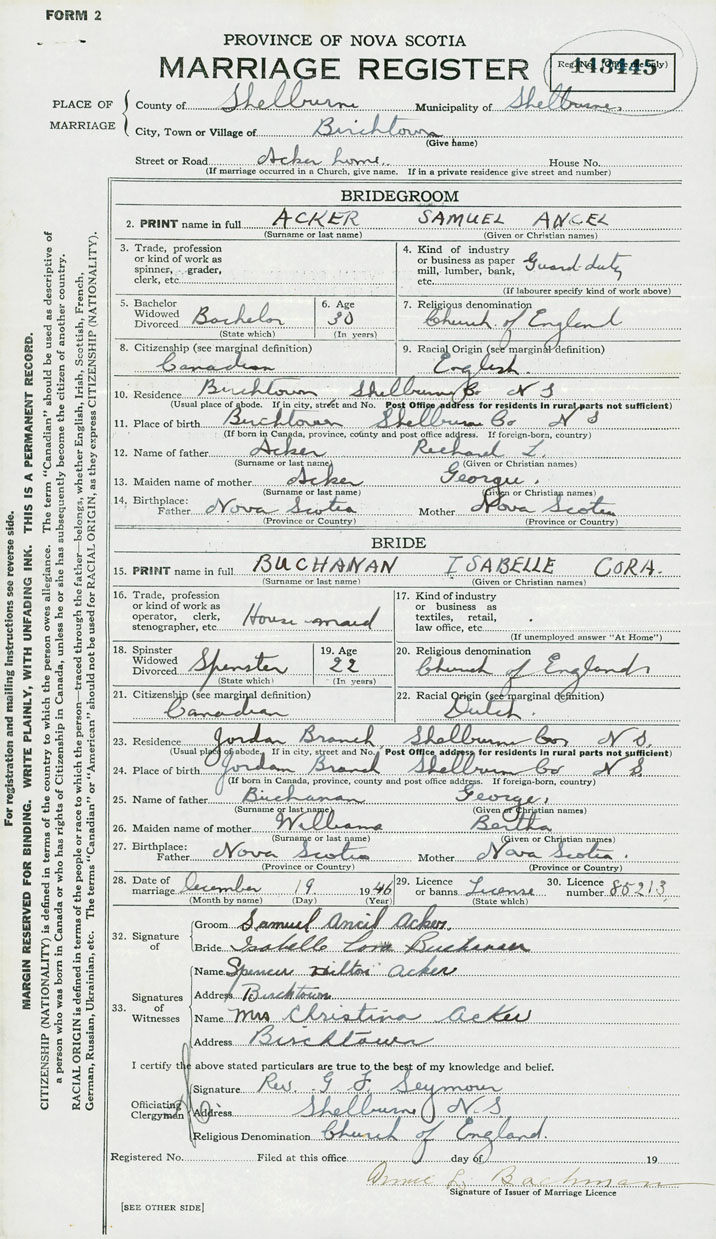 FORM 2
PROVINCE OF NOVA SCOTIA
MARRIAGE REGISTER
113445
PLACE OF MARRIAGE
County of Shelburne Municipality of Shelburne,
City, Town or Village of Birchtown
(Give name)
Street or Road Acker home. House No.
(If marriage occurred in a Church, give name. If in a private residence give street and number)
BRIDEGROOM
2. PRINT name in full ACKER SAMUEL ANGEL
(Surname or last name) (Given or Christian names)
3. Trade, profession or kind of work as spinner, grader, clerk, etc.
4. Kind of industry or business as paper mill, lumber, bank, etc. Guard duty
(If labourer specify kind of work above)
5. Bachelor Widowed Divorced Bachelor
(State which)
6. Age 30
(In years)
7. Religious denomination
Church of England
8. Citizenship (see marginal definition)
Canadian
9. Racial Origin (see marginal definition)
English.
10. Residence Birchtown Shelburne Co N S
(Usual place of abode. If in city, street and No. Post Office address for residents in rural parts not sufficient)
11. Place of birth Birchtown Shelburne Co N S
(If born in Canada, province, county and post office address. If foreign-born, country)
12. Name of father Acker Richard L.
(Surname or last name) (Given or Christian names)
13. Maiden name of mother Acker Georgie.
(Surname or last name) (Given or Christian names)
14. Birthplace: Father Nova Scotia Mother Nova Scotia
(Province or Country) (Province or Country)
BRIDE
15. PRINT name in full BUCHANAN ISABELLE CORA.
(Surname or last name) (Given or Christian names)
16. Trade, profession or kind of work as operator, clerk, stenographer, etc. House maid
17. Kind of industry or business as textiles, retail, law office, etc.
(If unemployed answer "At Home")
18. Spinster Widowed Divorced Spinster
(State which)
19. Age 22
(In years)
20. Religious denomination
Church of England
21. Citizenship (see marginal definition)
Canadian
22. Racial Origin (see marginal definition)
Dutch.
23. Residence Jordan Branch Shelburne Co, N S.
(Usual place of abode. If in city, street and No. Post Office address for residents in rural parts not sufficient)
24. Place of birth Jordan Branch Shelburn Co N S.
(If born in Canada, province, county and post office address. If foreign-born, country)
25. Name of father Buchanan George,
(Surname or last name) (Given or Christian names)
26. Maiden name of mother Williams Bertha
(Surname or last name) (Given or Christian names)
27. Birthplace: Father Nova Scotia Mother Nova Scotia.
(Province or Country) (Province or Country)
28. Date of marriage December 19 1946
(Month by name) (Day) (Year)
29. Licence or banns License
(State which)
30. Licence number 85213
32. Signature of
Groom Samuel Ancil Acker
Bride Isabelle Cora Buchanan
33. Signatures of Witnesses
Name Spencer Hilton Acker
Address Birchtown
Name Mrs Christina Acker
Address Birchtown
I certify the above stated particulars are true to the best of my knowledge and belief.
Officiating Clergyman
Signature Rev. G F. Seymour
Address Shelburne N.S.
Religious Denomination Church of England.
Registered No. Filed at this office day of 19
Bachman
Signature of Issuer of Marriage Licence
[SEE OTHER SIDE]
For registration and mailing instructions see reverse side.
MARGIN RESERVED FOR BINDING. WRITE PLAINLY, WITH UNFADING INK. THIS IS A PERMANENT RECORD.
CITIZENSHIP (NATIONALITY) is defined in terms of the country to which the person owes allegiance. The term "Canadian" should be used as descriptive of
a person who was born in Canada or who has rights of Citizenship in Canada, unless he or she has subsequently become the citizen of another country.
RACIAL ORIGIN is defined in terms of the people or race to which the person—traced through the father—belongs, whether English, Irish, Scottish, French,
German, Russian, Ukrainian, etc. The terms "Canadian" or "American" should not be used for RACIAL ORIGIN, as they express CITIZENSHIP (NATIONALITY).